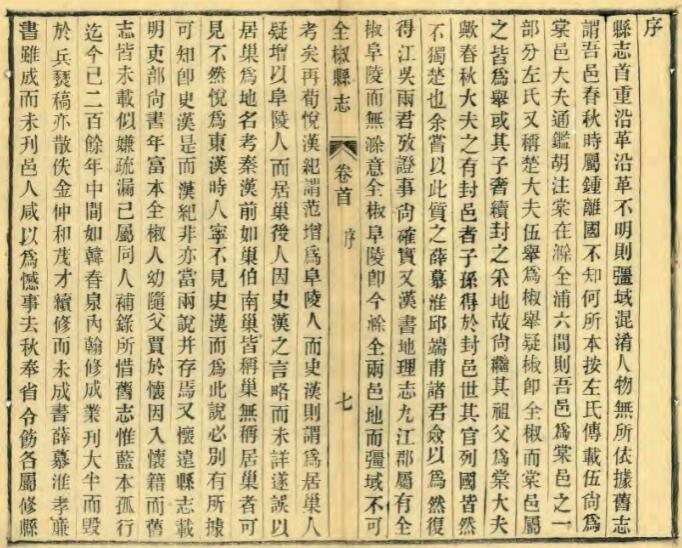 序
縣志首重沿革沿革不明則疆域混淆人物無所依據舊志
謂吾邑春秋時屬鍾離國不知何所本按左氏傳載伍尙爲
棠邑大夫通鑑胡注棠在滁全浦六間則吾邑爲棠邑之一
部分左氏又稱楚大夫伍舉爲椒舉疑椒卽全椒而棠邑屬
之皆爲舉或其子奢續封之采地故尙繼其祖父爲棠大夫
歟春秋大夫之有封邑者子孫得於封邑世其官列國皆然
不獨楚也余嘗以此質之薛慕淮邱端甫諸君僉以爲然復
得江吳兩君攷證事尙確實又漢書地理志九江郡屬有全
椒阜陵而無滁意全椒阜陵卽今滁全兩邑地而疆域不可
全椒縣志
卷首
序
七
考矣再荀悅漢紀謂范增爲阜陵人而史漢則謂爲居巢人
疑增以阜陵人而居巢後人因史漢之言略而未詳遂誤以
居巢爲地名考秦漢前如巢伯南巢皆稱巢無稱居巢者可
見不然悅爲東漢時人寧不見史漢而爲此說必別有所據
可知卽史漢是而漢紀非亦當兩說并存焉又懷遠縣志載
明吏部尙書年富本全椒人幼隨父賈於懷因入懷籍而舊
志皆未載似嫌疏漏已屬同人補錄所借舊志惟藍本孤行
迄今已二百餘年中間如韓春泉內翰修成業刊大半而毀
於兵燹稿亦散佚金仲和茂才續修而未成書薛慕淮孝廉
書雖成而未刊邑人咸以爲憾事去秋奉省令飭各屬修縣